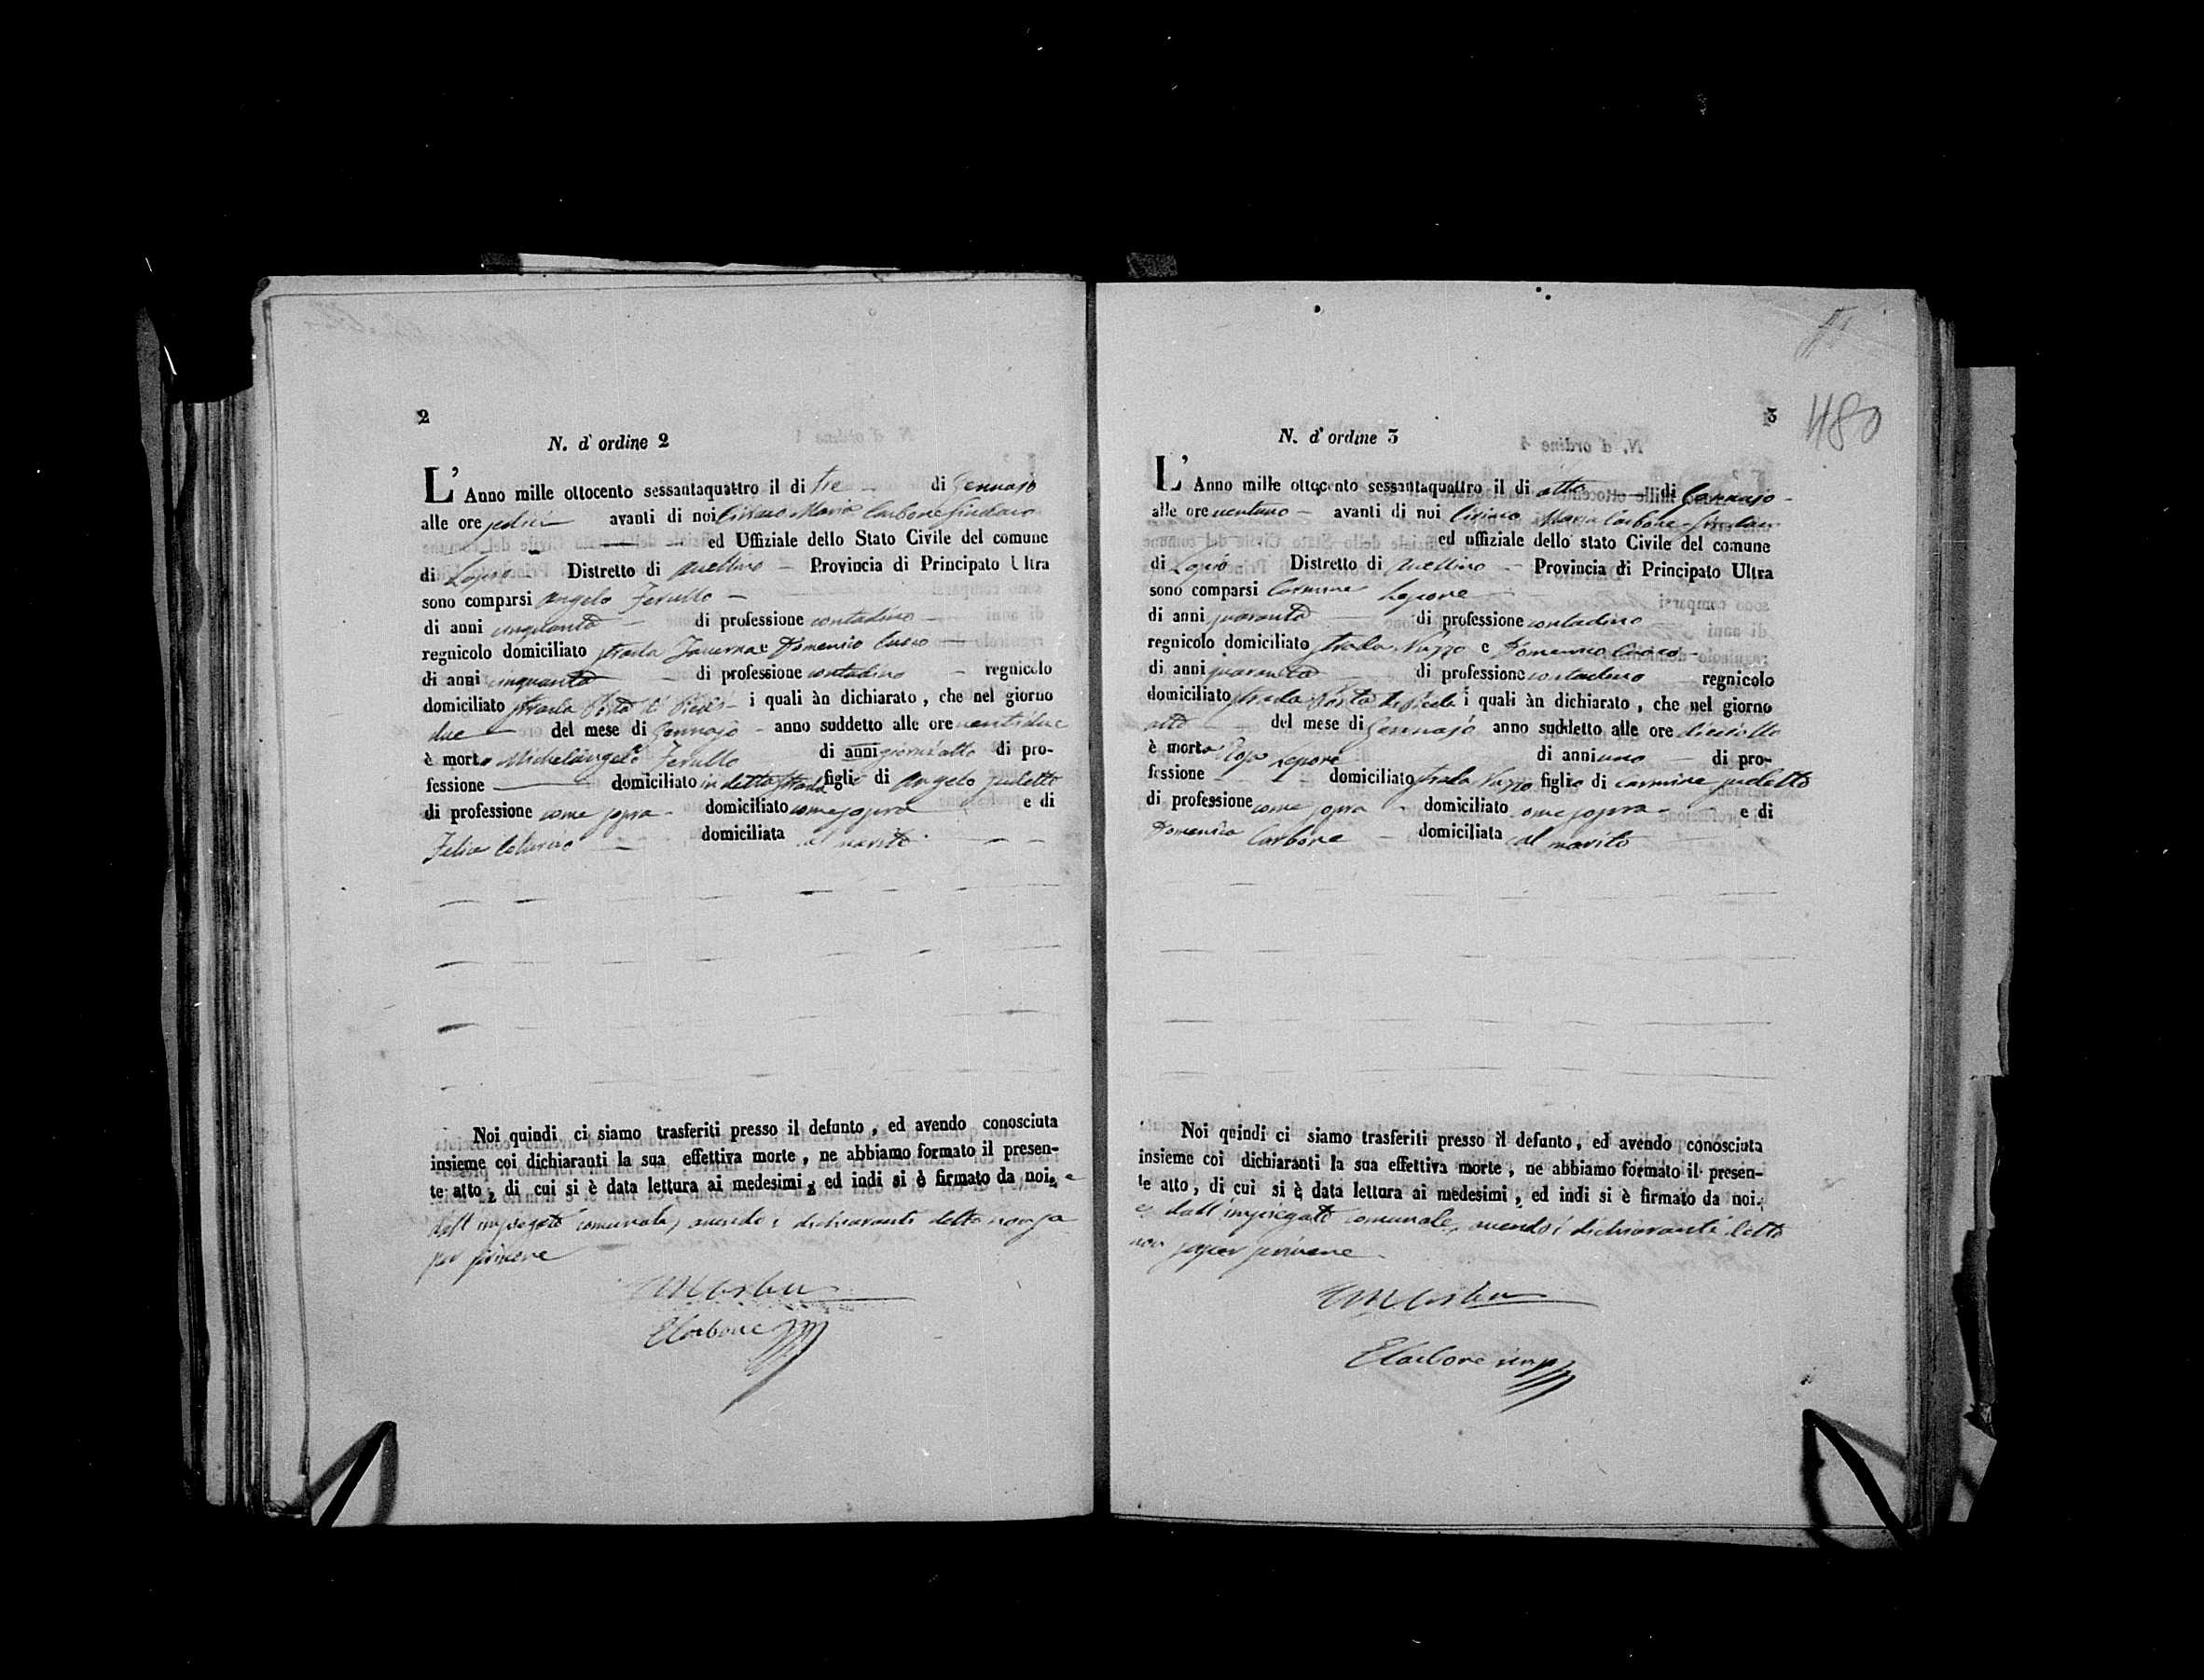 2
N. d' ordine 2
L' Anno mille ottocento sessantaquattro il di tre di Gennajo
alle ore sedici avanti di noi Maria Carbone Sindaco
ed Uffiziale dello Stato Civile del comune
di Lapio Distretto di Avellino Provincia di Principato Ultra
sono comparsi Angelo Ferullo
di anni cinquanta di professione contadino
regnicolo domiciliato strada Taverna e Domenico
di anni cinquanta di professione contadino regnicolo
domiciliato strada Porta di i quali àn dichiarato, che nel giorno
due del mese di Gennajo anno suddetto alle ore ventidue
è morto Michelangelo Ferullo di anni giorni otto di pro-
fessione domiciliato in detta strada figlio di Angelo sudetto
di professione come sopra domiciliato come sopra e di
domiciliata col marito
Noi quindi ci siamo trasferiti presso il defunto, ed avendo conosciuta
insieme coi dichiaranti la sua effettiva morte, ne abbiamo formato il presen-
te atto, di cui si è data lettura ai medesimi, ed indi si è firmato da noi, e
dall'impiegato comunale, avendo i dichiaranti detto non sa
per scrivere
ECarbone
3
480
N. d' ordine 3
L' Anno mille ottocento sessantaquattro il di otto di Gennajo
alle ore ventuno avanti di noi Maria Carbone Sindaco
ed uffiziale dello stato Civile del comune
di Lapio Distretto di Avellino Provincia di Principato Ultra
sono comparsi Carmine Lepore
di anni quaranta di professione contadino
regnicolo domiciliato strada e Domenico
di anni quaranta di professione contadino regnicolo
domiciliato strada Porta di i quali àn dichiarato, che nel giorno
otto del mese di Gennajo anno suddetto alle ore diciotto
è morta Rosa Lepore di anni uno di pro-
fessione domiciliato strada figlia di Carmine sudetto
di professione come sopra domiciliato come sopra e di
Domenica Carbone domiciliata col marito
Noi quindi ci siamo trasferiti presso il defunto, ed avendo conosciuta
insieme coi dichiaranti la sua effettiva morte, ne abbiamo formato il presen-
te atto, di cui si è data lettura ai medesimi, ed indi si è firmato da noi,
e dall'impiegato comunale, avendo i dichiaranti detto
non saper scrivere
ECarbone